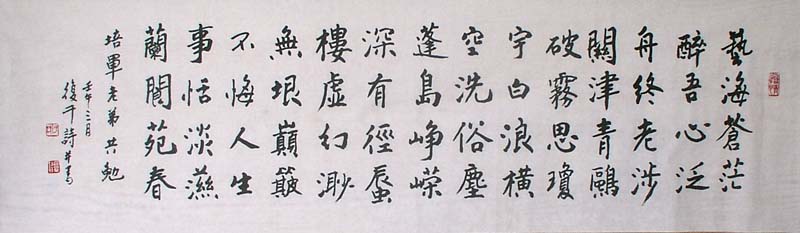 藝海蒼茫
醉吾心泛
舟終老涉
關津青鷗
破霧思瓊
宇白浪橫
空洗俗塵
蓬島崢嶸
深有徑蜃
樓虛幻渺
無垠巔簸
不悔人生
事恬淡滋
蘭閬苑春
培軍老弟共勉
壬午三月
復千詩并書